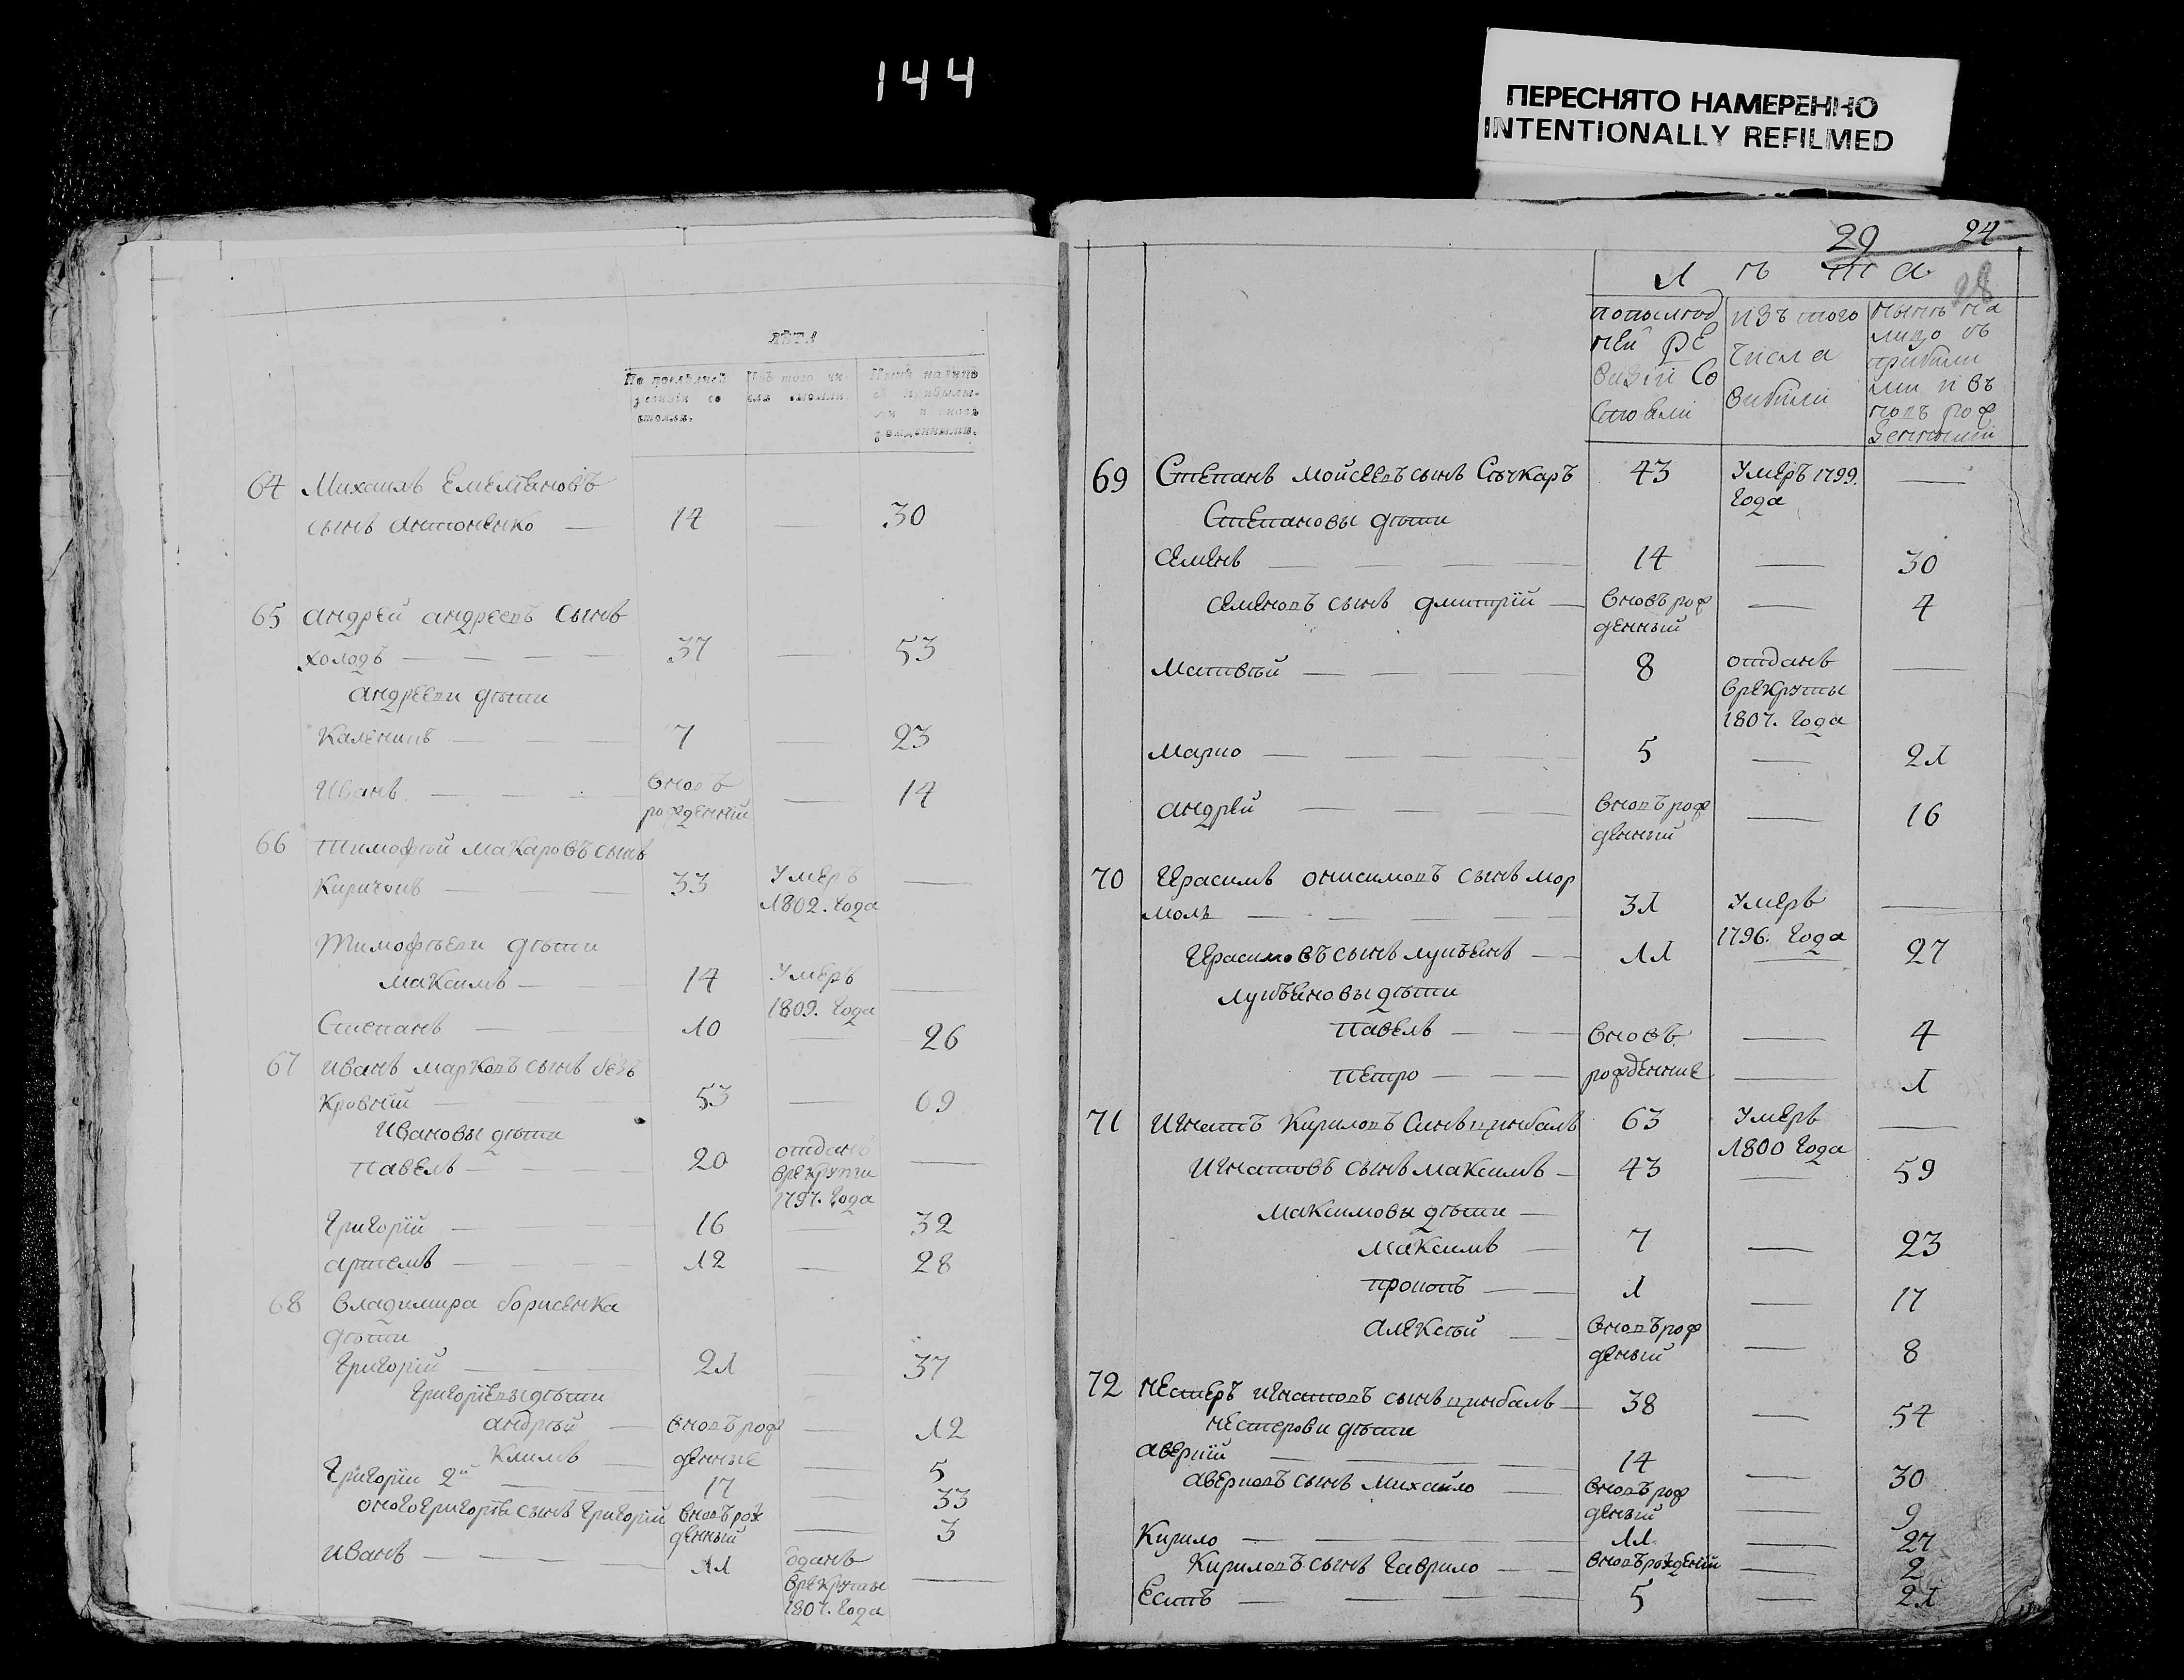 144
ПЕРЕСНЯТО НАМЕРЕННО
INTENTIONALLY REFILMED
ЛѢТА
По послѣдней ревизіи со стояло.
Изъ того чи сла выбыли.
Нынѣ налицо
64 Михаилъ Емельяновъ
сынъ Антоненко — 14 — 30
65 андрей андреевъ сынъ
холодъ — 37 — 53
андрееви дѣти
Каленикъ — 7 — 23
Иванъ — вновь рожденний — 14
66 тимофѣй макаровъ сынъ
Киричокъ — 33 Умеръ 1802. года —
Тимофѣеви дѣти
максимъ — 14 Умеръ 1809. года —
Степанъ — 10 — 26
67 иванъ марковъ сынъ безъ
Кровний — 53 — 69
Ивановы дѣти
павелъ — 20 отданъ врекрути 1797. года —
григорій — 16 — 32
артемъ — 12 — 28
68 владимира борисенка
дѣти
григорій — 21 — 37
григоріевы дѣти
андрѣй — вновъ рож — 12
Климъ — денные — 5
григорій 2й — 17 — 33
оного григорія сынъ григорій вновъ рож денный — 3
иванъ — 11 одданъ врекруты 1807. года —
29 24
28
Л ѣ т а
попослѣд ней ре визіи со стояли
изъ того числа вибили
нынѣ на лицо съ прибыли ми и въ новъ рож денными
69 Степанъ мойсеевъ сынъ Сѣчкаръ 43 Умеръ 1799. года —
Степановы дѣти
семенъ — 14 — 30
семеновъ сынъ дмитрій — вновъ рож денный — 4
матвѣй — 8 отданъ врекруты 1807. года —
марко — 5 — 21
андрей — вновъ рож денный — 16
70 герасимъ онисимовъ сынъ мор
моль — 31 Умеръ 1796. года —
герасимовъ сынъ лукъянъ — 11 — 27
лукъяновы дѣти
павелъ — вновъ — 4
петро — рожденние — 1
71 игнатъ Кириловъ синъ цимбалъ 63 Умеръ 1800 года —
игнатовъ сынъ максимъ — 43 — 59
максимовы дѣти —
максимъ — 7 — 23
прокопъ — 1 — 17
алексѣй — вновъ рож деный — 8
72 нестеръ игнатовъ сынъ цимбалъ — 38 — 54
нестерови дѣти
аверкій — 14 — 30
аверковъ сынъ михайло — вновъ рож деный — 9
Кирило — 11 — 27
Кириловъ сынъ гаврило — вновъ рожденій — 2
— 5 — 21